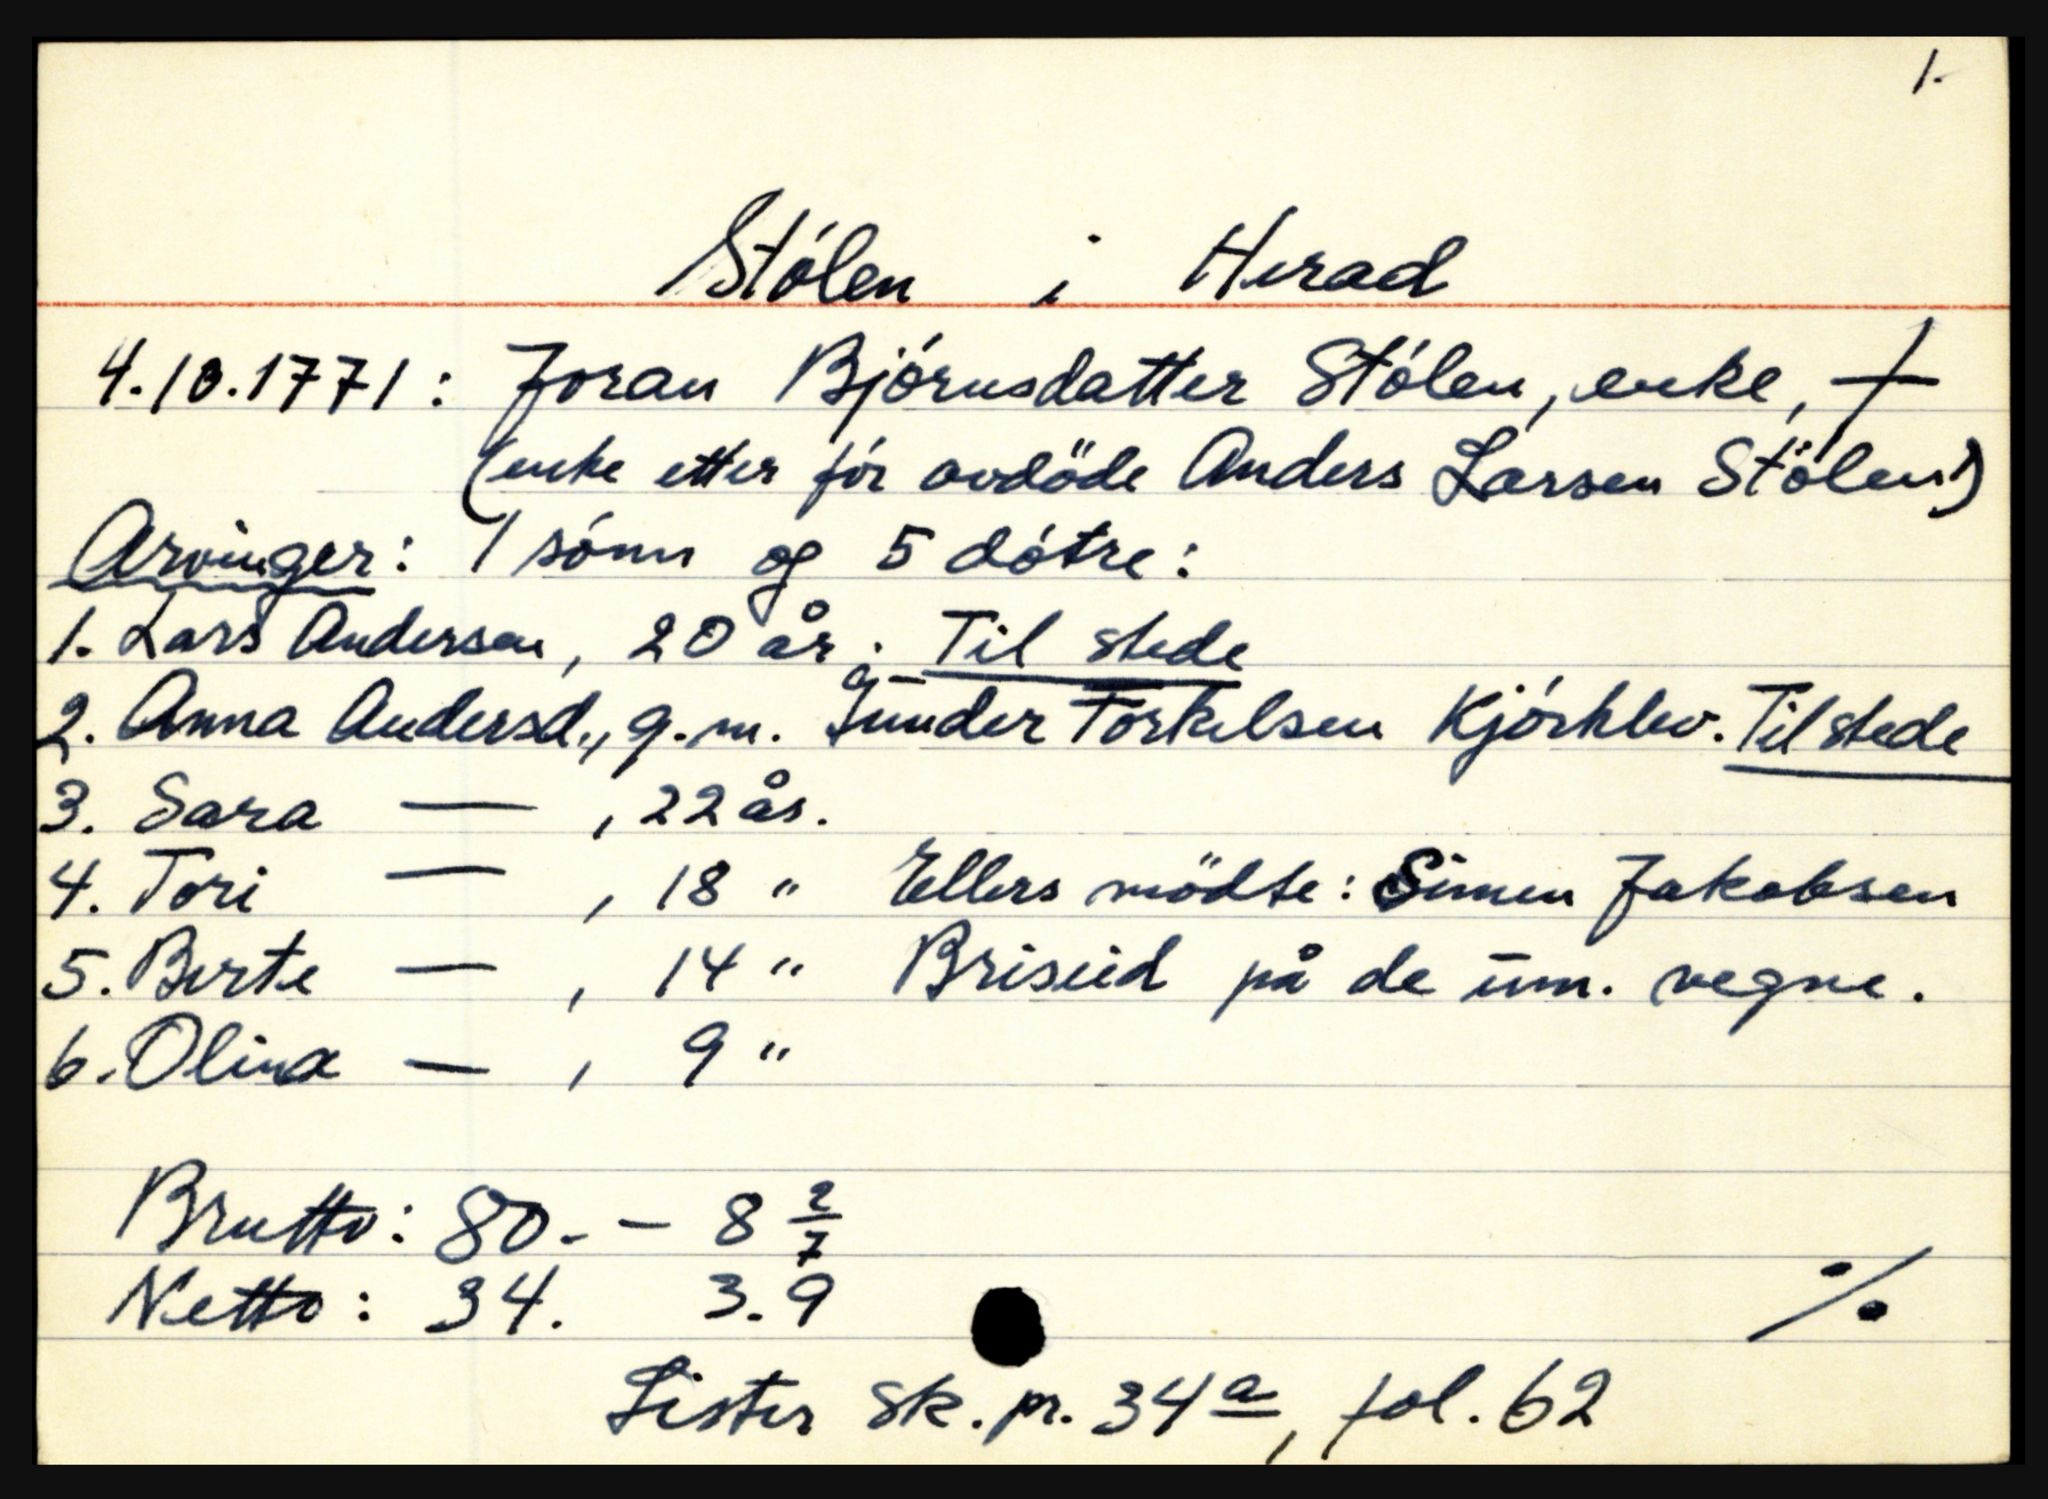 1.
Stólen i Herad
4.10.1771: Joran Bjórnsdatter Stólen, enke, +
(enke etter fór avdöde Anders Larsen Stölen!)
Arvinger: 1 sónn og 5 dótre:
1. Lars Andersen, 20 år. Til stede
2. Anna Andersd., g. m. Gunder Torkelsen Kjórklev. Til stede
3. Sara — , 22 år.
4. Tori — , 18 " Ellers mödte: Simen Jakobsen
5. Berte — , 14 " Briseid på de um. vegne.
6. Olina — , 9 "
Brutto: 80. - 8 2/7
Netto: 34. 3. 9
./.
Lister sk. pr. 34 a, fol. 62